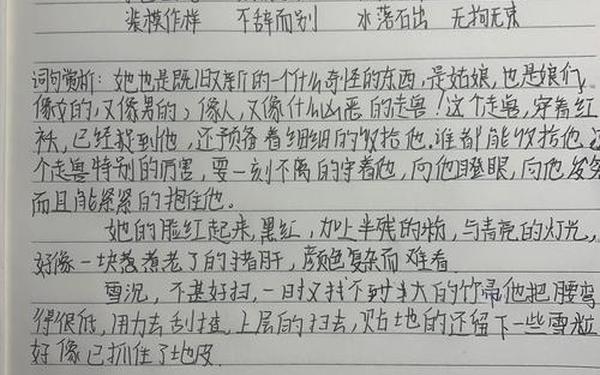 装模作样 不辞而别 水落石出 无拘无束
词句赏析：她也是既旧又新的一个什么奇怪的东西，是姑娘，也是娘们，
像女的，又像男的，像人，又像什么凶恶的走兽！这个走兽，穿着红
袄，已经捉到他，还预备着细细的收拾他。谁都能收拾他，这
个走兽特别的厉害，要一刻不离的守着他，向他瞪眼，向他发笑
而且能紧紧的抱住他。
她的脸红起来，黑红，加上半残的粉，与青亮的灯光，
好像一块煮老了的猪肝，颜色复杂而难看。
雪沉，不甚好扫，一时又找不到大的竹帚他把腰弯
得很低，用力去刮揸，上层的扫去，贴地的还留下一些雪粒
好像已抓住了地皮